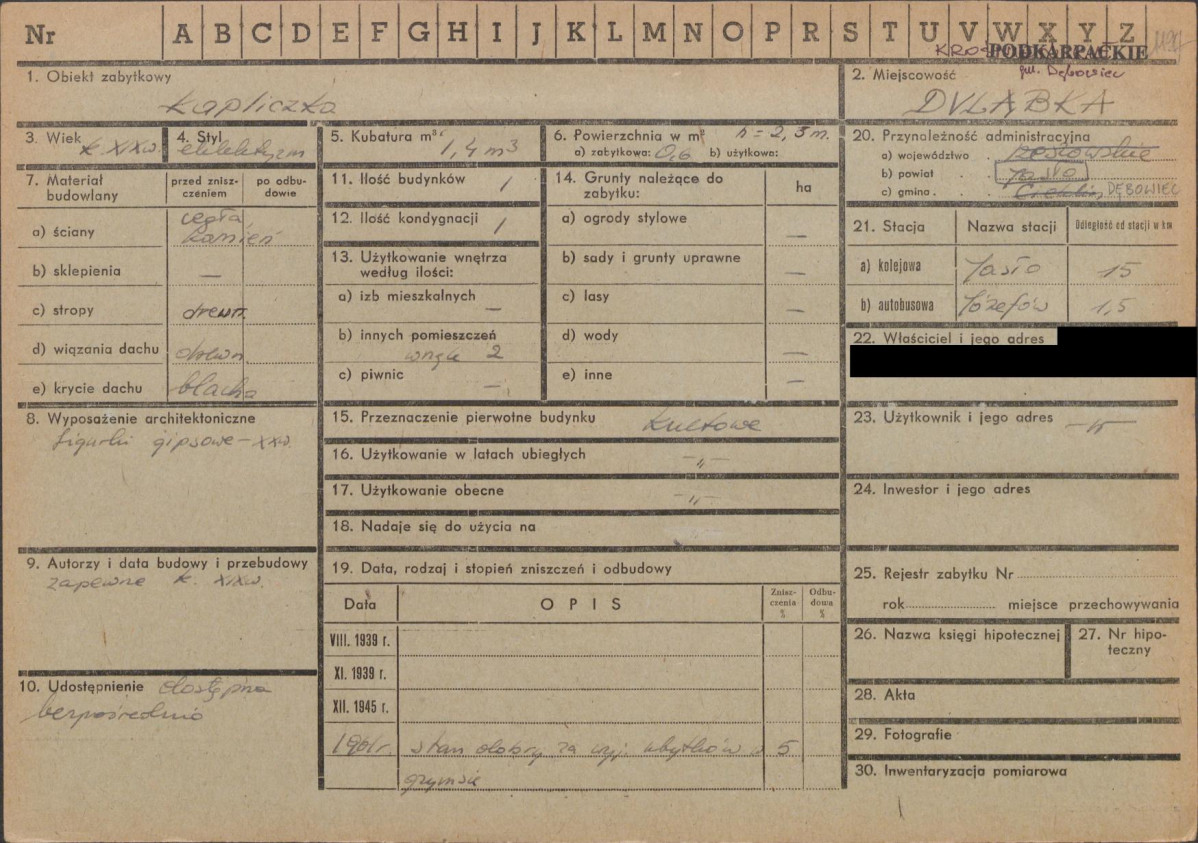 Nr A B C D E F G H I J K L M N O P R S T U V W X Y Z
PODKARPACKIE
gm. Dębowiec
1. Obiekt zabytkowy
Kapliczka
2. Miejscowość
DULĄBKA
3. Wiek k. XIX w.
4. Styl eklektyzm
5. Kubatura m³ 1,4 m3
6. Powierzchnia w m² h = 2,3 m.
a) zabytkowa: 0,6 b) użytkowa:
20. Przynależność administracyjna
a) województwo . rzeszowskie
b) powiat . . Jasło
c) gmina . . DĘBOWIEC
7. Materiał budowlany
przed zniszczeniem
po odbudowie
a) ściany cegła, kamień
b) sklepienia —
c) stropy drewn.
d) wiązania dachu drewn
e) krycie dachu blacha
11. Ilość budynków 1
12. Ilość kondygnacji 1
13. Użytkowanie wnętrza według ilości:
a) izb mieszkalnych —
b) innych pomieszczeń
wnęk 2
c) piwnic —
14. Grunty należące do zabytku:
ha
a) ogrody stylowe —
b) sady i grunty uprawne —
c) lasy —
d) wody —
e) inne —
21. Stacja Nazwa stacji Odległość od stacji w km
a) kolejowa Jasło 15
b) autobusowa Józefów 1,5
22. Właściciel i jego adres
8. Wyposażenie architektoniczne
figurki gipsowe – XX w.
15. Przeznaczenie pierwotne budynku kultowe
16. Użytkowanie w latach ubiegłych –„–
17. Użytkowanie obecne –„–
18. Nadaje się do użycia na
23. Użytkownik i jego adres –„–
24. Inwestor i jego adres
9. Autorzy i data budowy i przebudowy
zapewne k. XIX w.
10. Udostępnienie dostępna
bezpośrednio
19. Data, rodzaj i stopień zniszczeń i odbudowy
Data OPIS Zniszczenia % Odbudowa %
VIII. 1939 r.
XI. 1939 r.
XII. 1945 r.
1961 r. stan dobry za wyj. ubytków w 5
gzymsie
25. Rejestr zabytku Nr
rok miejsce przechowywania
26. Nazwa księgi hipotecznej
27. Nr hipoteczny
28. Akta
29. Fotografie
30. Inwentaryzacja pomiarowa